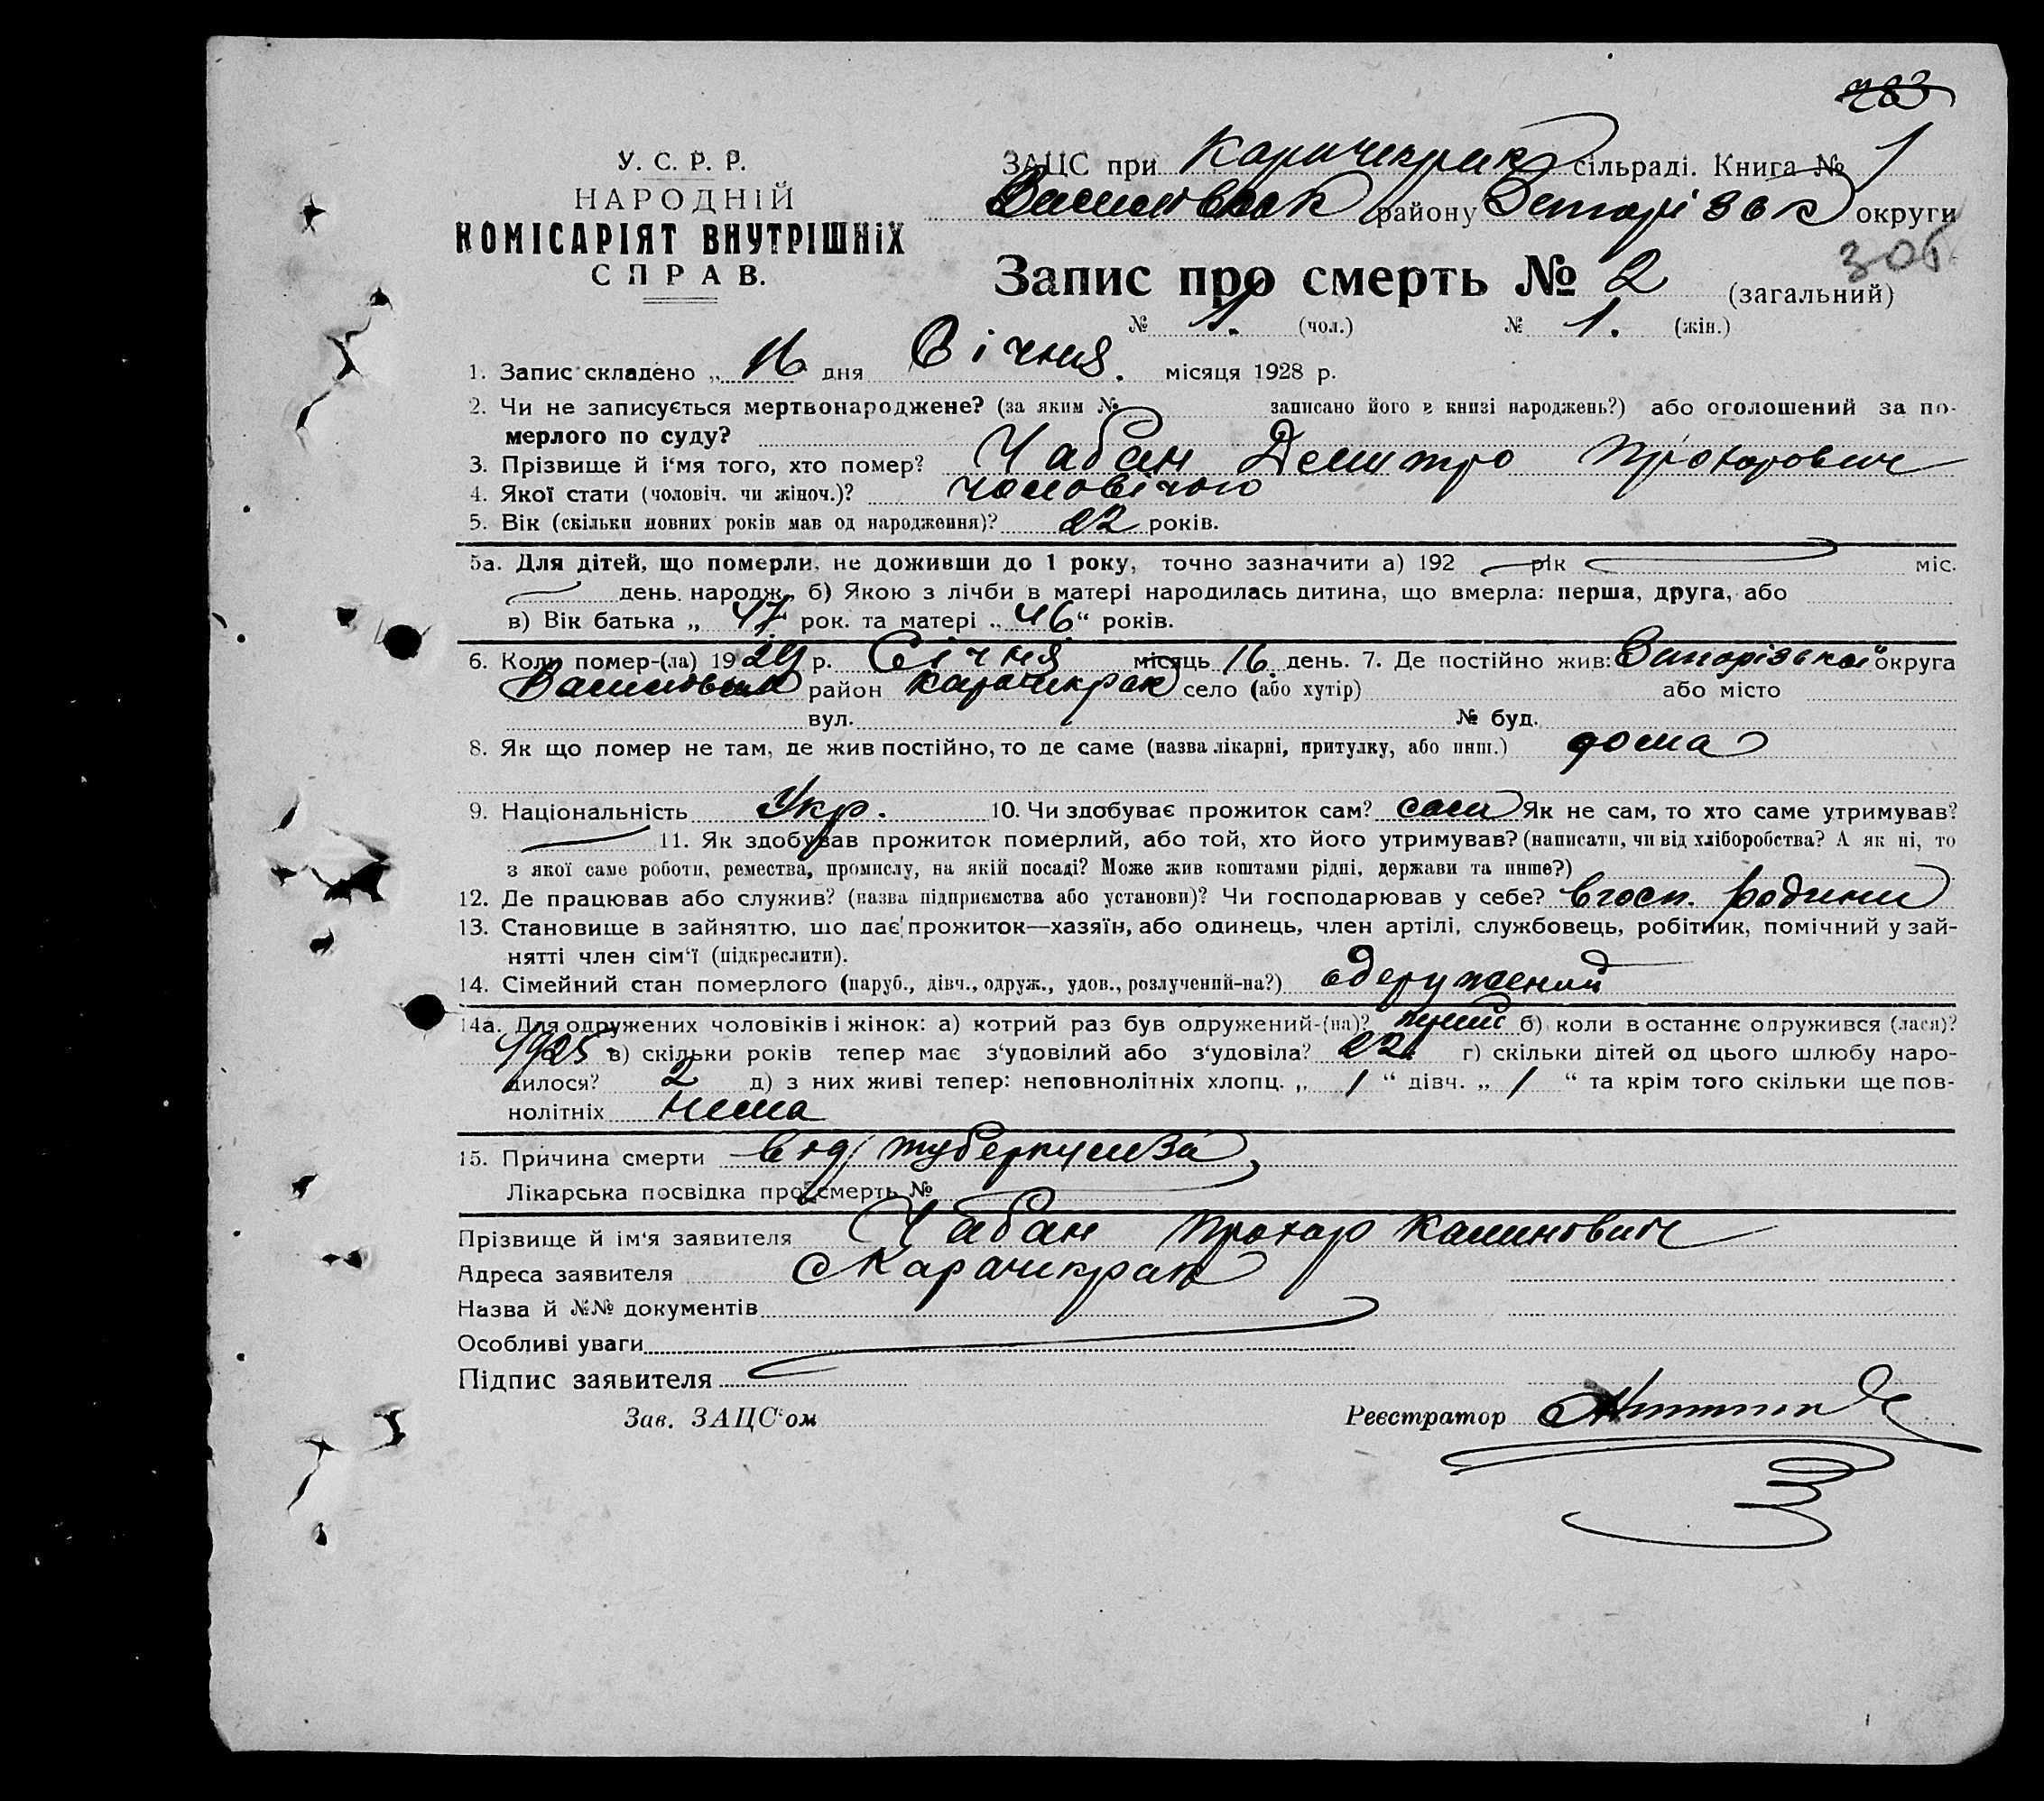 783
У. С. Р. Р.
НАРОДНІЙ
КОМІСАРІЯТ ВНУТРІШНІХ
СПРАВ.
ЗАЦС при Карачикрак сільраді. Книга № 1
Василівськ району Запорізьк округи
306
Запис про смерть № 2 (загальний)
№ 1. (чол.) № 1. (жін.)
1. Запис складено „ 16 дня Січня. місяця 1928 р.
2. Чи не записується мертвонароджене? (за яким № записано його в книзі народжень?) або оголошений за по-
мерлого по суду?
3. Прізвище й і'мя того, хто помер? Чабан Демитро Прохорович
4. Якої стати (чоловіч. чи жіноч.)? чоловічого
5. Вік (скільки повних років мав од народження)? 22 років.
5а. Для дітей, що померли, не доживши до 1 року, точно зазначити а) 192 рік міс.
день народж. б) Якою з лічби в матері народилась дитина, що вмерла: перша, друга, або
в) Вік батька „ 47 рок. та матері „ 46 “ років.
6. Коли помер-(ла) 1929 р. Січня місяць 16 день. 7. Де постійно жив: Запорізької округа
Василівськ район Карачикрак село (або хутір) або місто
вул. № буд.
8. Як що помер не там, де жив постійно, то де саме (назва лікарні, притулку, або инш.) дома
9. Національність Укр. 10. Чи здобуває прожиток сам? сам Як не сам, то хто саме утримував?
11. Як здобував прожиток померлий, або той, хто його утримував? (написати, чи від хліборобства? А як ні, то
з якої саме роботи, ремества, промислу, на якій посаді? Може жив коштами рідні, держави та инше?)
12. Де працював або служив? (назва підприємства або установи)? Чи господарював у себе? в госп. родини
13. Становище в зайняттю, що дає прожиток—хазяїн, або одинець, член артілі, службовець, робітник, помічний у зай-
нятті член сім'ї (підкреслити).
14. Сімейний стан померлого (паруб., дівч., одруж., удов., розлучений-на?) одержений
14а. Для одружених чоловіків і жінок: а) котрий раз був одружений-(на)? б) коли в останнє одружився (лася)?
1925 в) скільки років тепер має з'удовілий або з'удовіла? 22 г) скільки дітей од цього шлюбу наро-
дилося? 2 д) з них живі тепер: неповнолітніх хлопц. „ 1 “ дівч. „ 1 “ та крім того скільки ще пов-
нолітніх нема
15. Причина смерти від туберкульоза
Лікарська посвідка про смерть №
Прізвище й ім'я заявителя Чабан Прохор Калинович
Адреса заявителя с Карачикрак
Назва й №№ документів
Особливі уваги
Підпис заявителя
Зав. ЗАЦС'ом Реєстратор